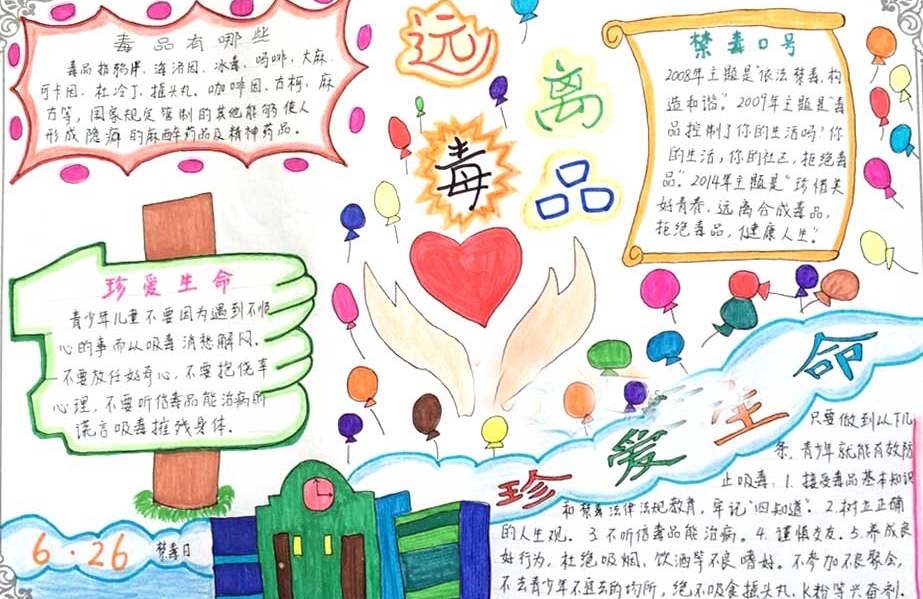 毒品有哪些
毒品指鸦片、海洛因、冰毒、吗啡、大麻、
可卡因、杜冷丁、摇头丸、咖啡因、古柯、麻
古等，国家规定管制的其他能够使人
形成隐癖的麻醉药品及精神药品。
远
离
毒
品
禁毒口号
2008年主题是“依法禁毒，构
造和谐”。2009年主题是“毒
品控制了你的生活吗？你
的生活，你的社区，拒绝毒
品”。2014年主题是“珍惜美
好青春，远离合成毒品，
拒绝毒品，健康人生”。
珍爱生命
青少年儿童不要因为遇到不顺
心的事而以吸毒消愁解闷。
不要放任好奇心，不要抱侥幸
心理，不要听信毒品能治病的
谎言吸毒摧残身体。
6·26
禁毒日
珍爱生命
只要做到以下几
条，青少年就能有效防
止吸毒：1.接受毒品基本知识
和禁毒法律法规教育，牢记“四知道”。2.树立正确
的人生观。3.不听信毒品能治病。4.谨慎交友。5.养成良
好行为，杜绝吸烟、饮酒等不良嗜好。不参加不良聚会，
不去青少年不宜去的场所，绝不吸食摇头丸、K粉等兴奋剂。